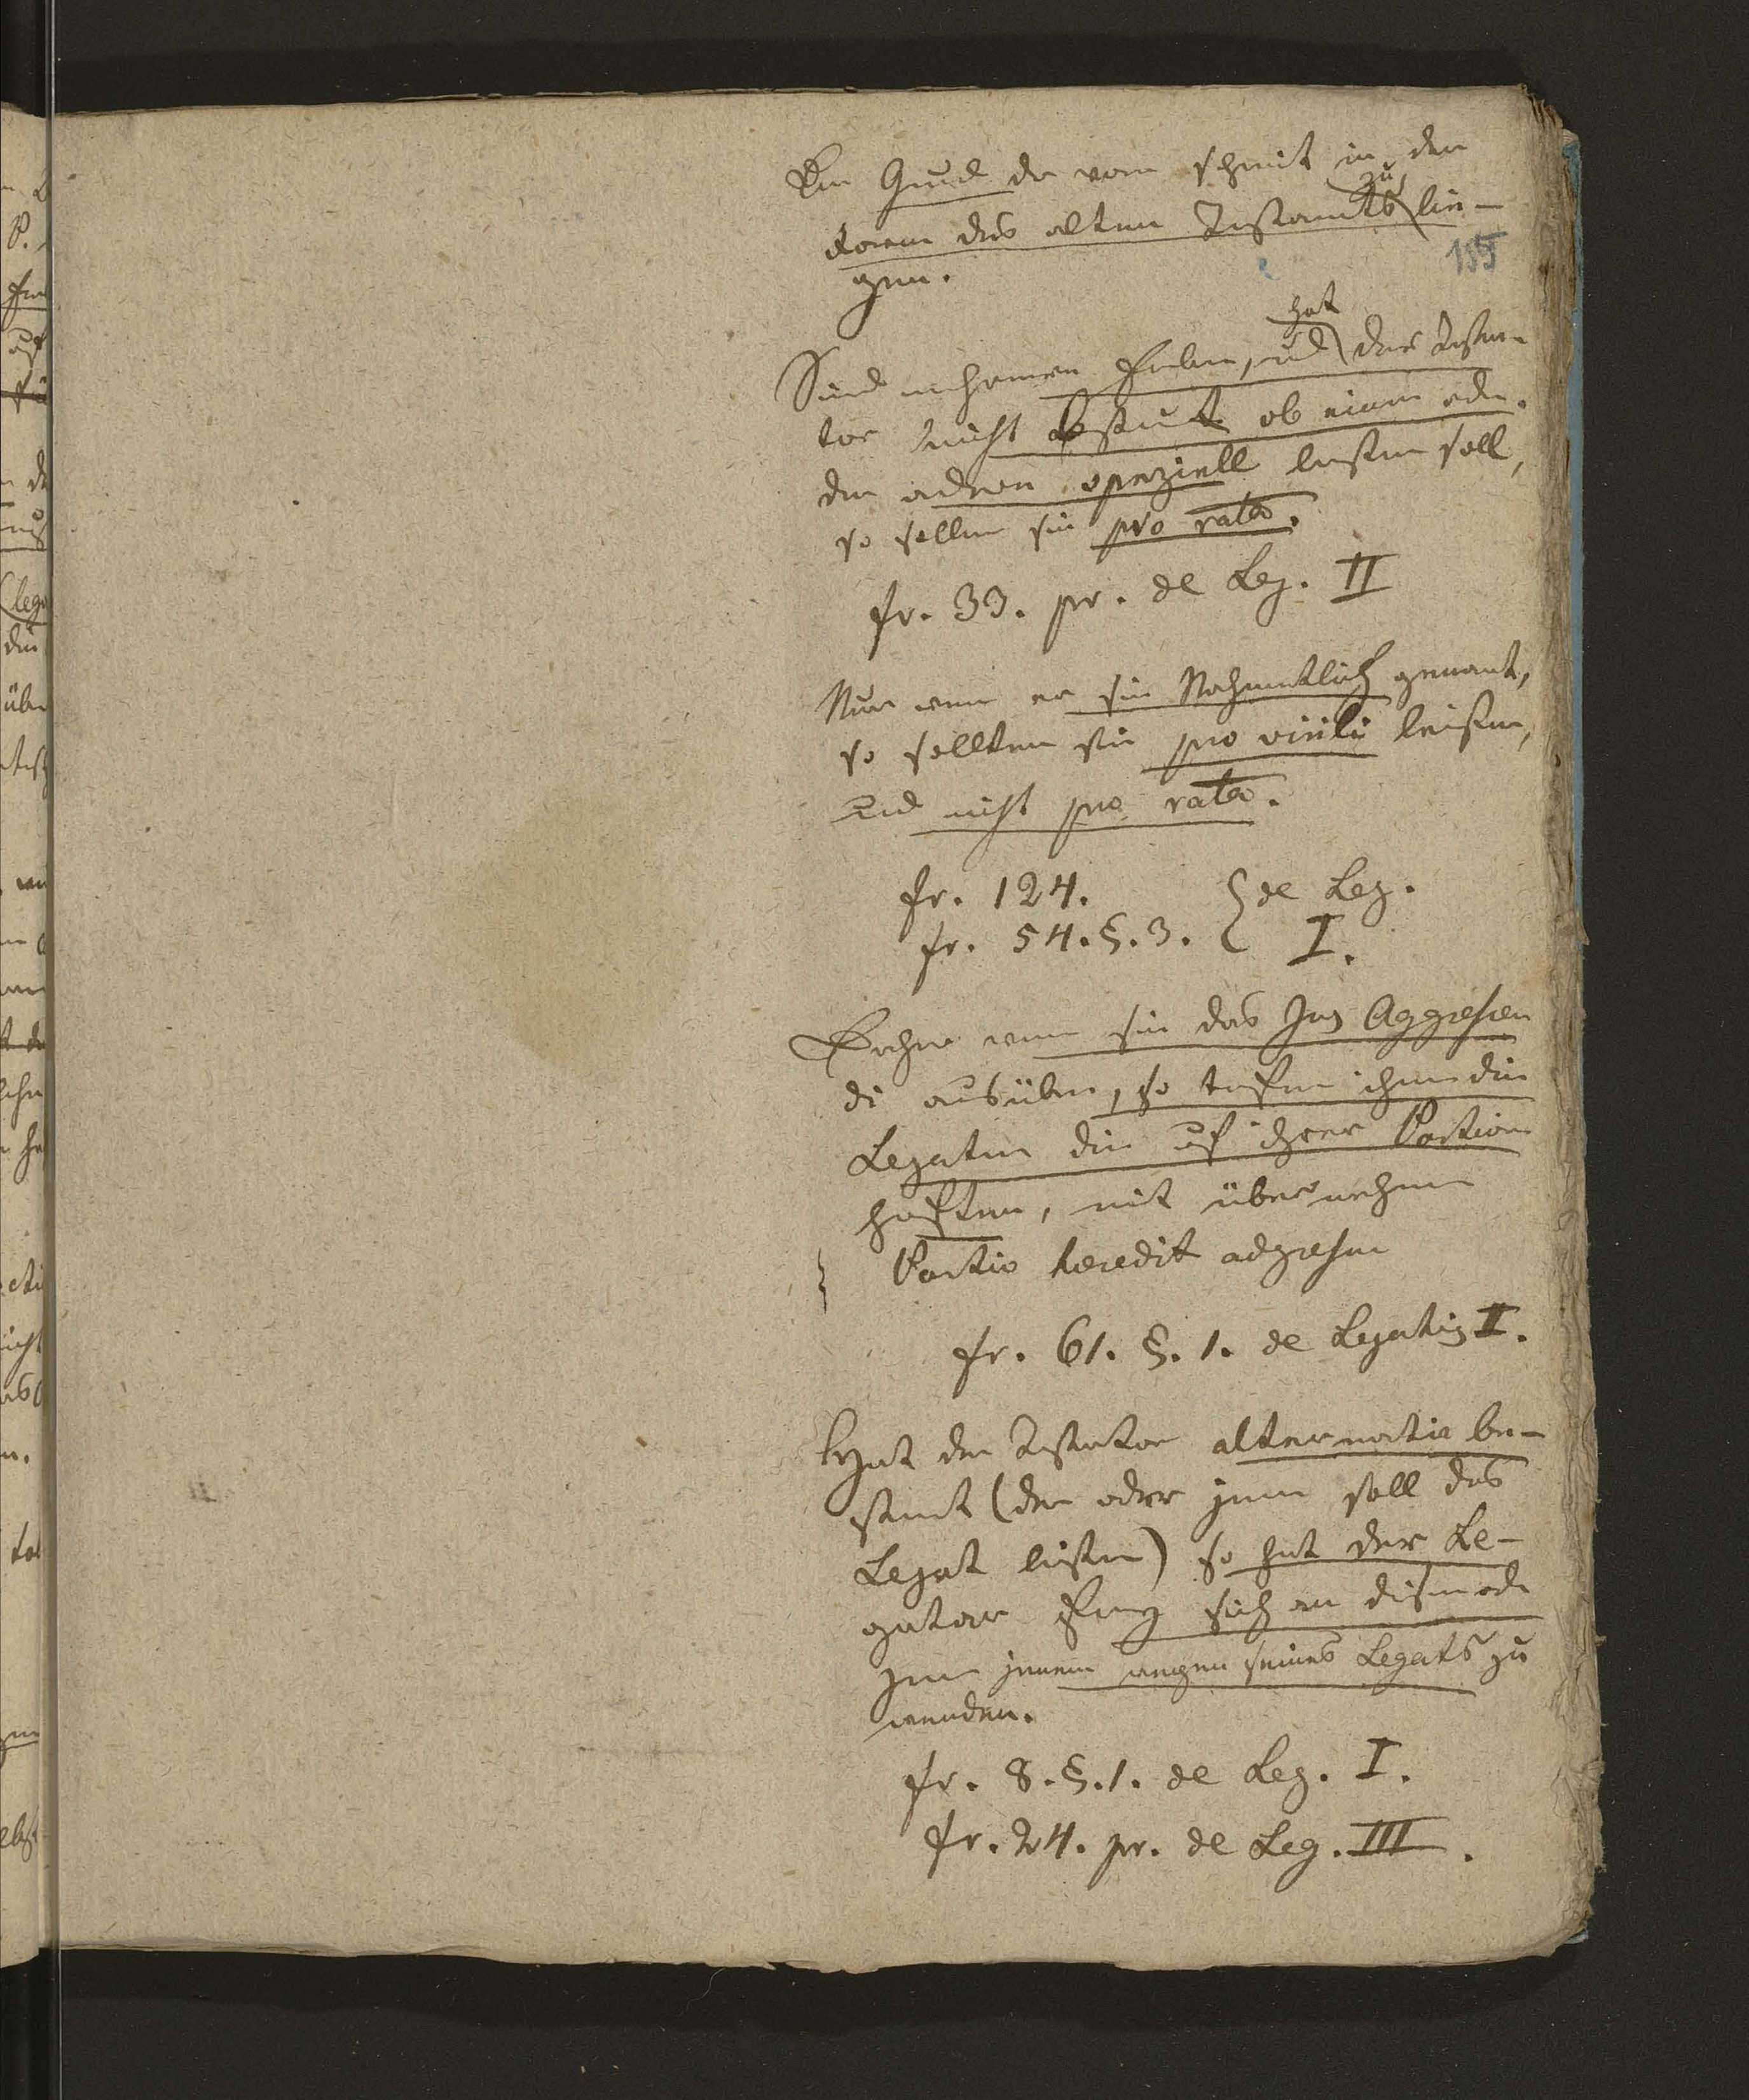 Der Grund davon scheint in der
zu
Form des alten Testaments lie-
155
gen.
hat
Sind mehrere Erben, und der Testa-
tor nicht bestimt ob einer oder
der andere speziell leisten soll,
so sollen sie pro rata.
fr. 33. pr. de Leg. II
Nur wenn er sie Nahmentlich genant,
so sollten sie pro virili leisten,
und nicht pro rata.
fr. 124. de Leg.
fr. 54. §. 3. I.
Ferner wenn sie das Jus Adcrescen
di ausüben, so müssen sie die
Legaten die auf ihrer Portion
haften, mit übernehmen
Portio heredit adcrescen
fr. 61. §. 1. de Legatis II.
Hat der Testator alternativ be-
stimt (der oder jener soll das
Legat leisten) so hat der Le-
gatar sich an diesen oder
jenen wegen seines Legats zu
wenden.
fr. 8. §. 1. de Leg. I.
fr. 24. pr. de Leg. III.